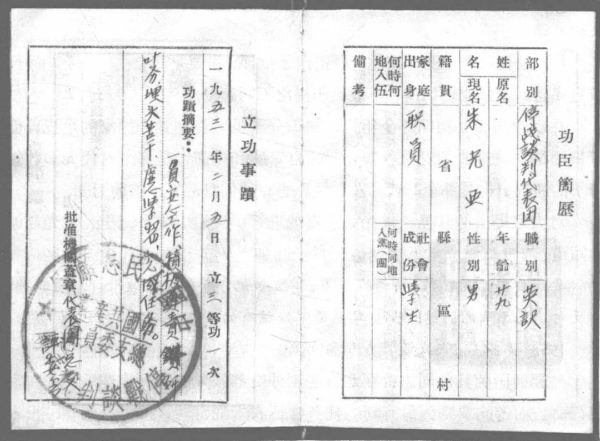 功臣簡歷
部別 停战談判代表团 職別 英訳
姓名 原名 年齡 廿九
現名 朱光亚 性別 男
籍貫 省 縣 區 村
家庭出身 职員 社會成份 学生
何時何地入伍 何時何地入黨(團)
備考
立功事蹟
一九五三年二月五日立三等功一次
功蹟摘要：
一貫安心工作，積極負責，鑽研
业务，埋头苦干，虚心学习，完成任务。
批准機關蓋章 代表團